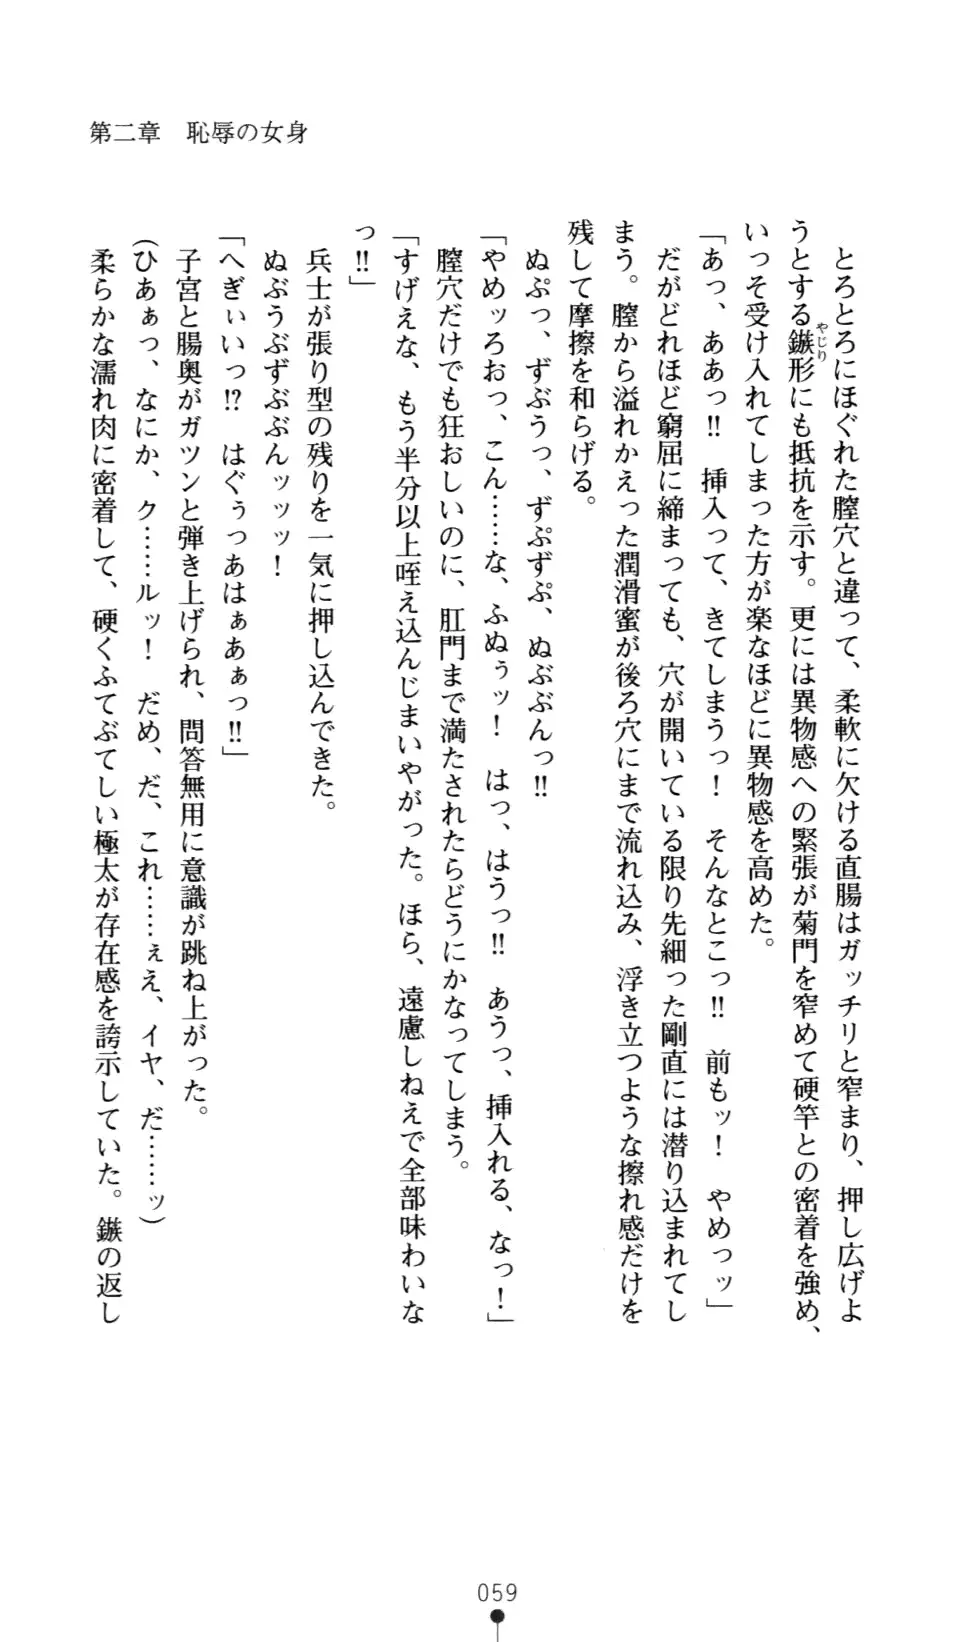 第二章　恥辱の女身
　とろとろにほぐれた膣穴と違って、柔軟に欠ける直腸はガッチリと窄まり、押し広げよ
うとする鏃形にも抵抗を示す。更には異物感への緊張が菊門を窄めて硬竿との密着を強め、
やじり
いっそ受け入れてしまった方が楽なほどに異物感を高めた。
「あっ、ああっ‼　挿入って、きてしまうっ！　そんなとこっ‼　前もッ！　やめっッ」
　だがどれほど窮屈に締まっても、穴が開いている限り先細った剛直には潜り込まれてし
まう。膣から溢れかえった潤滑蜜が後ろ穴にまで流れ込み、浮き立つような擦れ感だけを
残して摩擦を和らげる。
　ぬぷっ、ずぶうっ、ずぷずぷ、ぬぶぶんっ‼
「やめッろおっ、こん……な、ふぬぅッ！　はっ、はうっ‼　あうっ、挿入れる、なっ！」
　膣穴だけでも狂おしいのに、肛門まで満たされたらどうにかなってしまう。
「すげえな、もう半分以上咥え込んじまいやがった。ほら、遠慮しねえで全部味わいな
っ‼」
　兵士が張り型の残りを一気に押し込んできた。
　ぬぶうぶずぶぶんッッッ！
「へぎぃいっ⁉　はぐぅっあはぁあぁっ‼」
　子宮と腸奥がガツンと弾き上げられ、問答無用に意識が跳ね上がった。
（ひあぁっ、なにか、ク……ルッ！　だめ、だ、これ……ぇえ、イヤ、だ……ッ）
　柔らかな濡れ肉に密着して、硬くふてぶてしい極太が存在感を誇示していた。鏃の返し
059